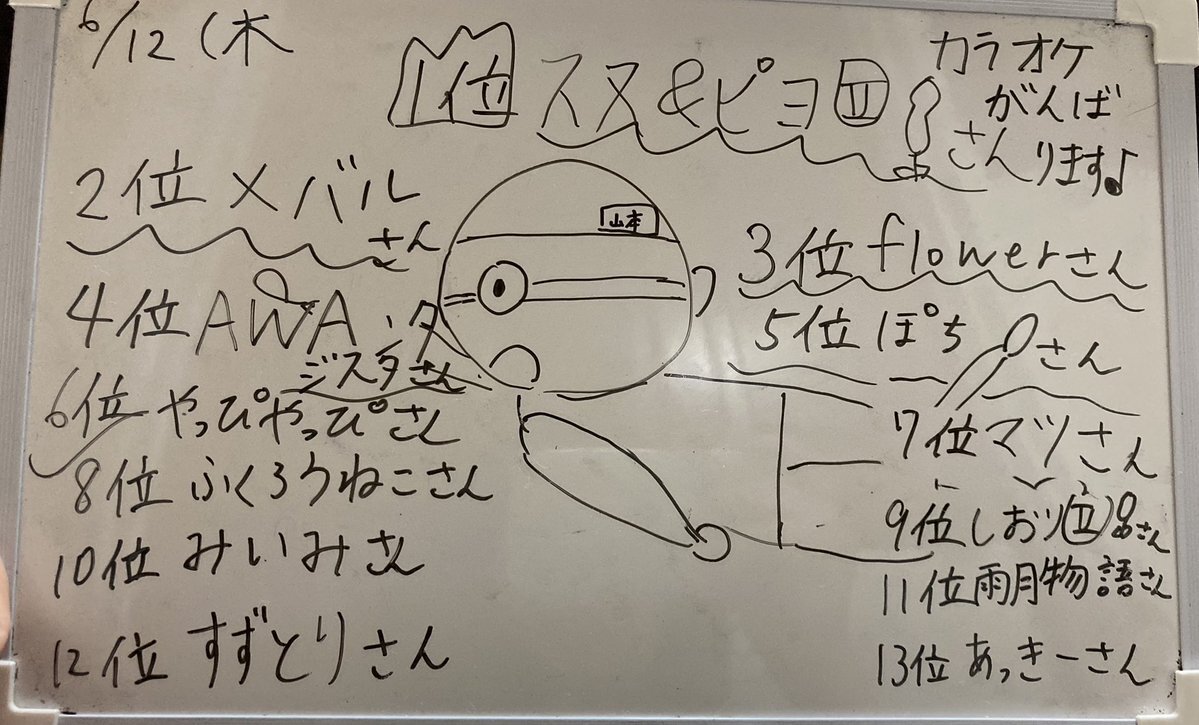 6/12(木
1位 スヌ&ピヨ さん
カラオケ
がんば
ります♪
2位 メバル
さん
山本
3位 flowerさん
4位 AWA
ジスタさん
5位 ぽち さん
6位 やっぴやっぴさん
7位 マツさん
8位 ふくろうねこさん
9位 しおり さん
10位 みいみさん
11位 雨月物語さん
12位 すずとりさん
13位 あっきーさん